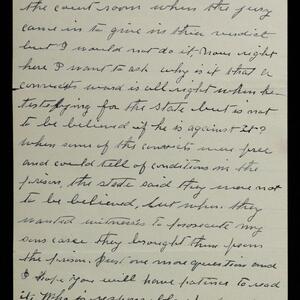 the court room when the jury
came in to give in their verdict
but I would not do it. Now right
here I want to ask why is it that a
convicts word is all right when he
testifying for the State but is not
to be believed if he is against it?
when some of the convicts were free
and could tell of conditions in the
prison, the state said they were not
to be believed, but when they
wanted witnesses to prosecute my
sons case they brought them from
the prison. Just one more question and
I hope you will have patience to read
it. Who is responsible